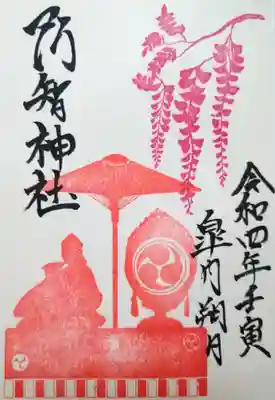 令和四年壬寅
皐月朔月
阿智神社